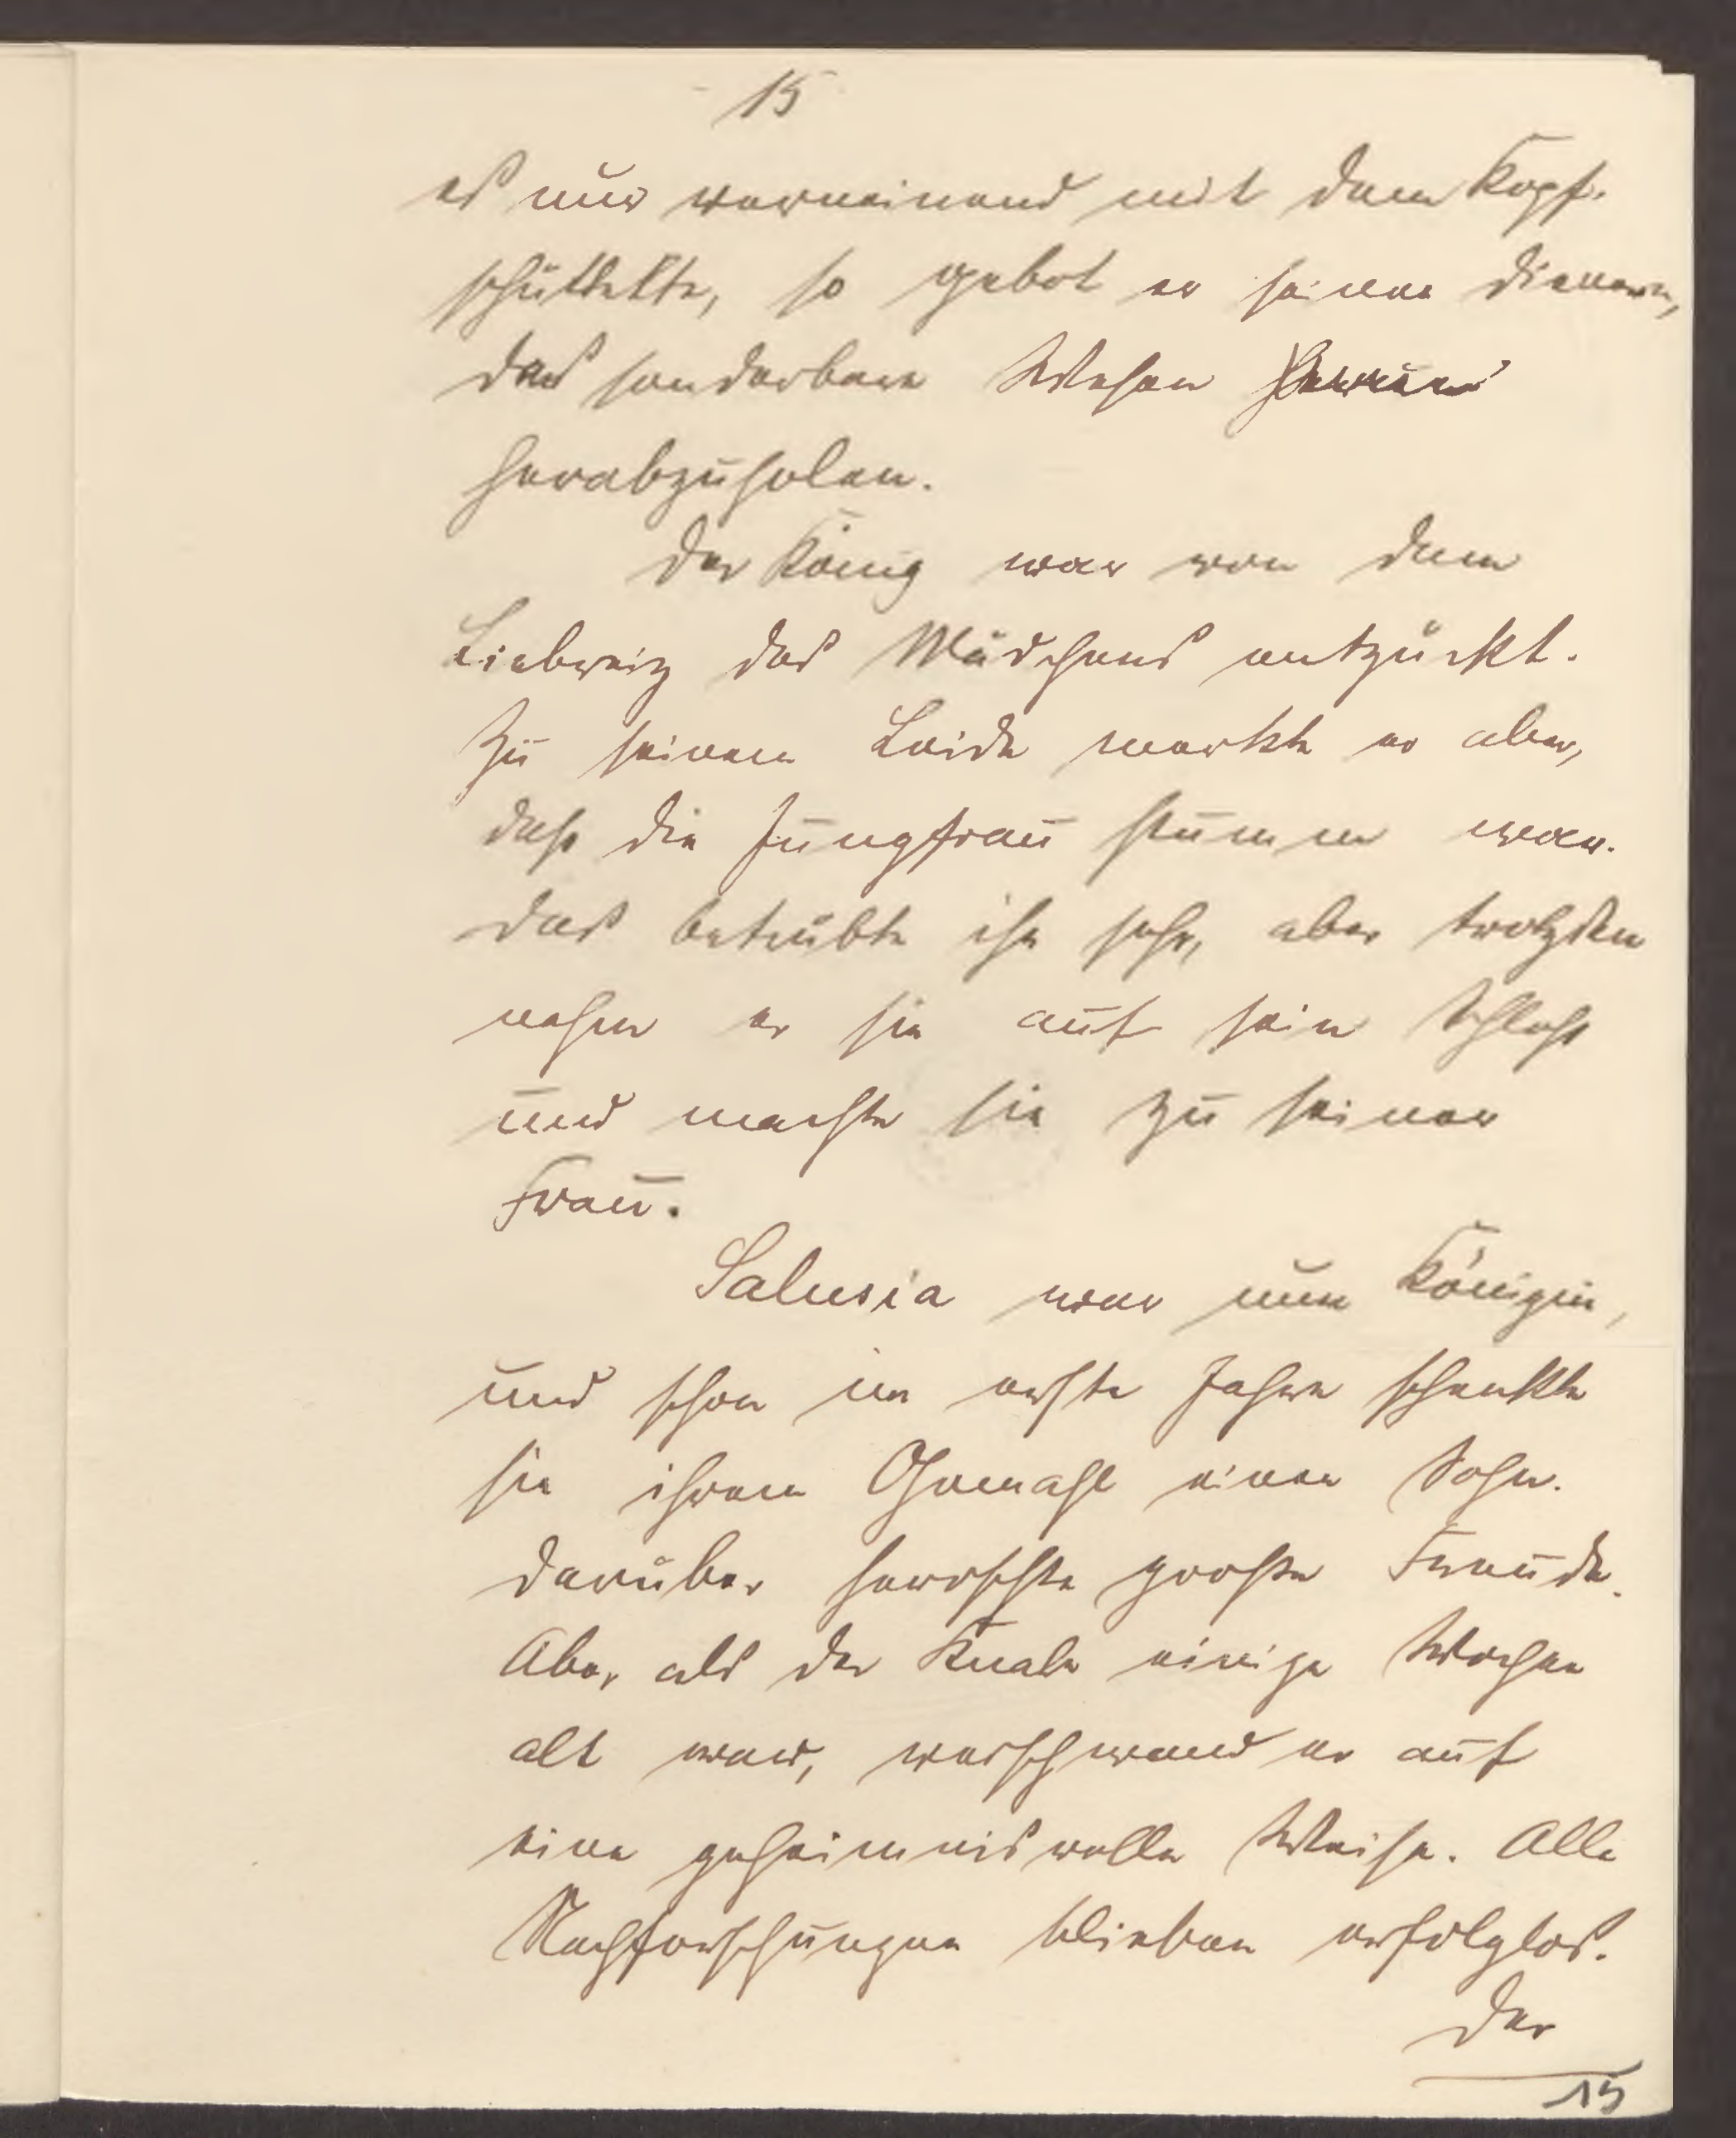 15
es nur verneinend mit dem Kopf
schüttelte, so gebot er seinen Dienern,
das sonderbare Wesen
herabzuholen.
Der König war von dem
Liebreiz des Mädchens entzückt.
Zu seinem Leide merkte er aber,
daß die Jungfrau stumm war.
Das betrübte ihn sehr, aber trotzdem
nahm er sie auf sein Schloß
und machte sie zu seiner
Frau.
Salusia war nun Königin,
und schon im erste Jahre schenkte
sie ihrem Gemahl einen Sohn.
Darüber herrschte große Freude.
Aber als der Knabe einige Wochen
alt war, verschwand er auf
eine geheimnisvolle Weise. Alle
Nachforschungen blieben erfolglos.
Der
15